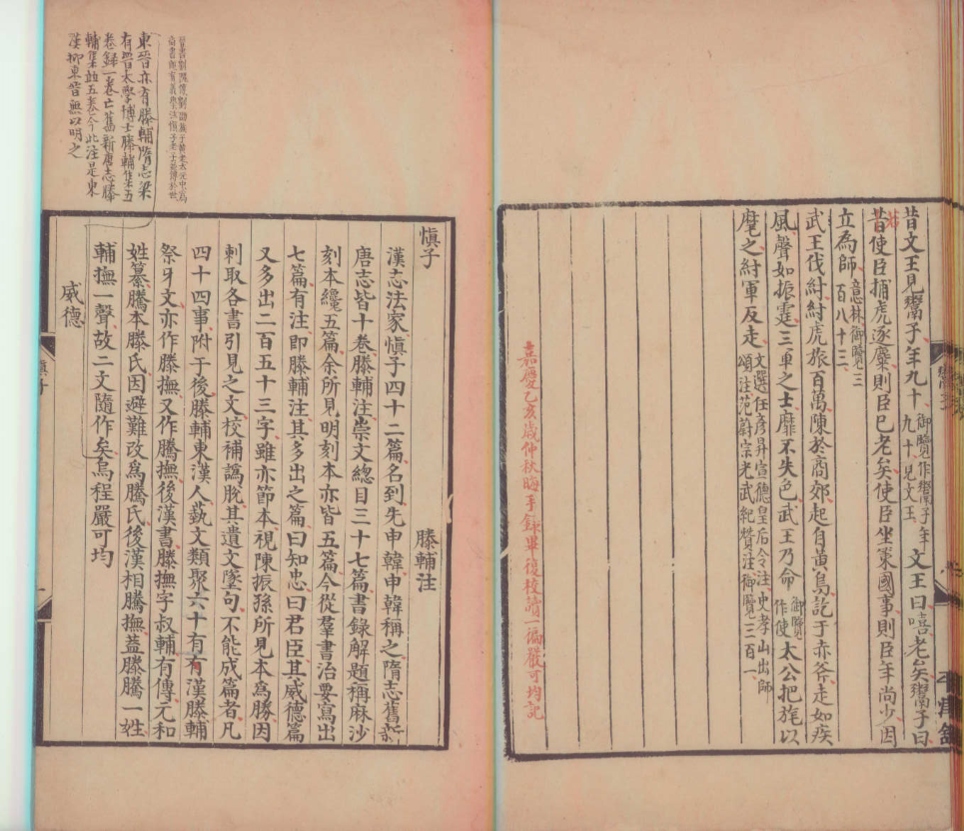 昔文王見鬻子年九十御覽作鬻子年九十見文王文王曰嘻老矣鬻子曰
昔使臣捕虎逐麋則臣已老矣使臣坐策國事則臣年尚少因
立為師意林御覽三百八十三
武王伐紂紂虎旅百萬陳於商郊起自黃鳥訖于赤斧走如疾
風聲如振霆三軍之士靡不失色武王乃命御覽作使太公把旄以
麾之紂軍反走文選任彥昇宣德皇后令注史孝山出師頌注范蔚宗光武紀贊注御覽三百一
嘉慶乙亥歲仲秋晦手錄畢復校讀一徧嚴可均記
東晉亦有滕輔隋志梁
有晉太學博士滕輔集五
卷錄一卷亡舊新唐志滕
輔集竝五卷今此注是東
漢抑東晉無以明之
慎子
滕輔注
漢志法家慎子四十二篇名到先申韓申韓稱之隋志舊新
唐志皆十卷滕輔注崇文總目三十七篇書錄解題稱麻沙
刻本纔五篇余所見明刻本亦皆五篇今從羣書治要寫出
七篇有注即滕輔注其多出之篇曰知忠曰君臣其威德篇
又多出二百五十三字雖亦節本視陳振孫所見本為勝因
刺取各書引見之文校補譌脫其遺文墜句不能成篇者凡
四十四事附于後滕輔東漢人蓺文類聚六十有有漢滕輔
祭牙文亦作滕撫又作騰撫後漢書滕撫字叔輔有傳元和
姓纂騰本滕氏因避難改為騰氏後漢相騰撫蓋滕騰一姓
輔撫一聲故二文隨作矣烏程嚴可均
威德